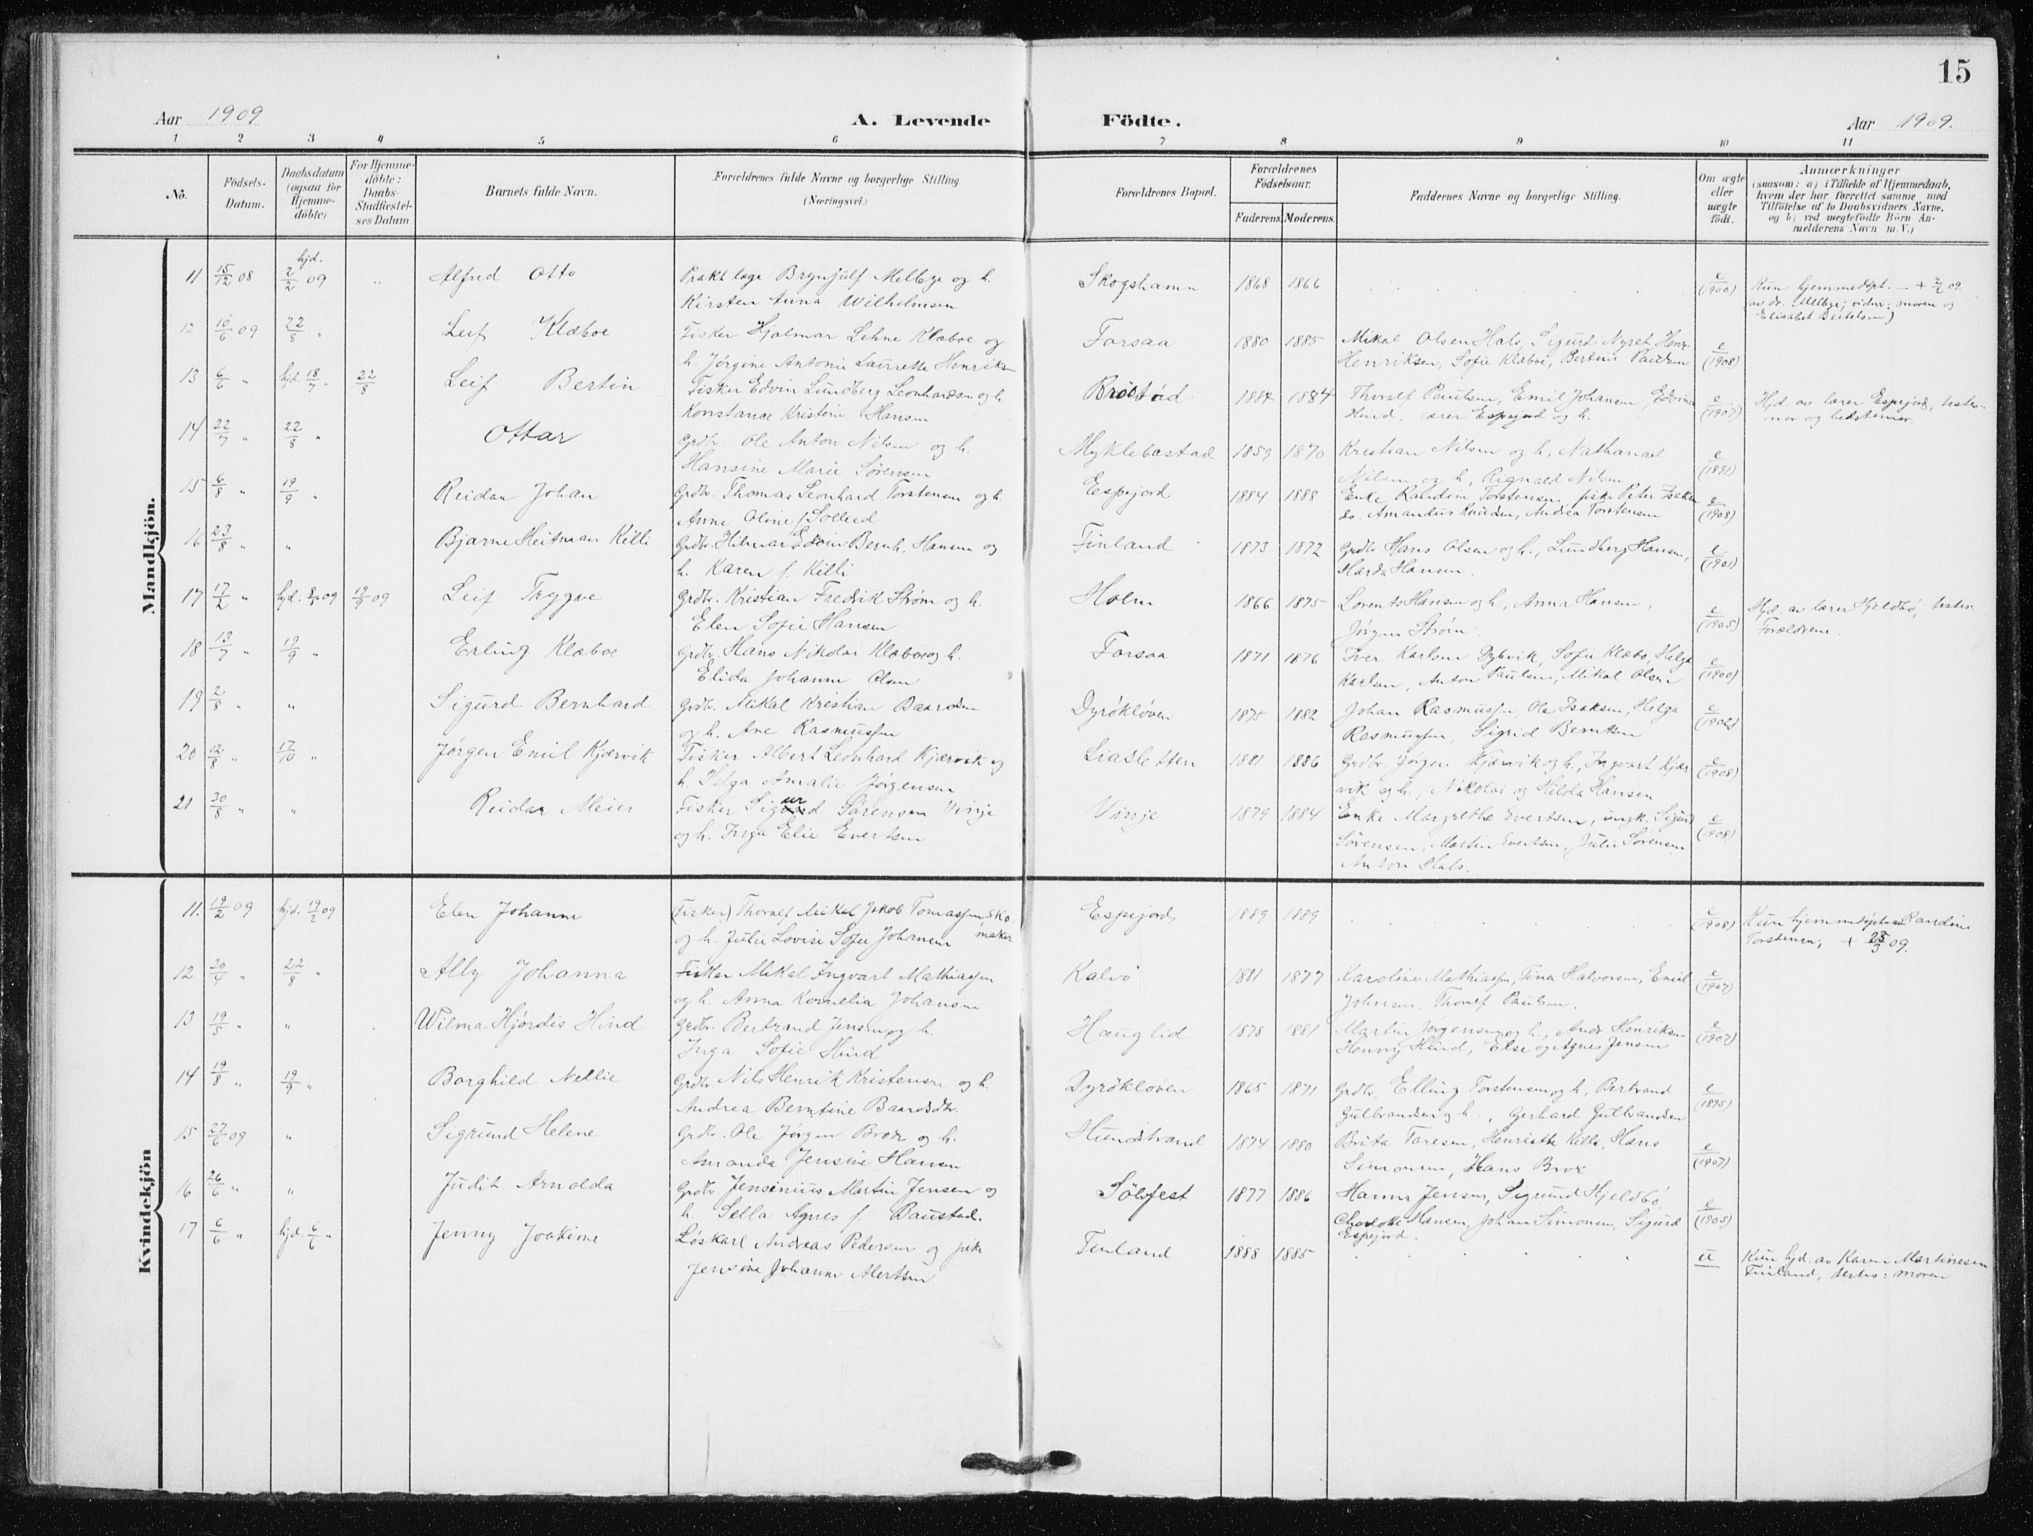 15
Aar 1909 A. Levende Födte. Aar 1909.
1 2 3 4 5 6 7 8 9 10 11
No. Födsels-Datum. Daabsdatum (ogsaa for Hjemme-döbte) For Hjemme-döbte: Daabs-Stadfæstel-ses Datum Barnets fulde Navn. Forældrenes fulde Navne og borgerlige Stilling. (Næringsvei.) Forældrenes Bopæl. Forældrenes Födselsaar. Faderens Moderens. Faddernes Navne og borgerlige Stilling. Om ægte eller uægte födt. Anmærkninger (saasom: a) i Tilfælde af Hjemmedaab, hvem der har forrettet samme med Tilföielse af to Daabsvidners Navne, og b) ved uægtefödte Börn An-melderens Navn m. V.)
Mandkjön.
11 15/12 08 hjd. 2/2 09 " Alfred Otto Prakt. læge Brynjulf Melbye og h. Skogshamn 1868 1866 e (1900) Kun hjemmedøpt. — + 2/2 09
Kirsten Anna Wilhelmsen av dr. Melbye; vidner: moren og
Elisabet Bertelsen)
12 10/6 09 22/8 " Leif Klæboe Fisker Hjalmar Lehne Klæboe og Forsaa 1880 1885 Mikal Olsen Hals, Sigurd Nyset, e (1908)
h. Jørgine Antonie Laurette Henriks- Henriksen, Sofie Klæboe, Bertine Paulsen
13 6/6 " hjd. 18/7 " 22/8 Leif Bertin Fisker Edvin Lundberg Leonhardsen og h. Brøstad 1884 1884 Thoralf Paulsen, Emil Johansen, Edvina e (1907) Hjd av lærer Espejord, testes-
Konstance Kristine Hansen Hind, lærer Espejord og h. mor og bedstemor
14 22/7 " 22/8 " Ottar Grdbr. Ole Anton Nilsen og h. Myklebostad 1859 1870 Kristian Nilsen og h., Nathanael e (1891)
Hansine Marie Sørensen Nilsen og h., Rignald Nilsen
15 6/8 " 19/9 " Reidar Johan Grdbr. Thomas Leonhard Torstensen og h. Espejord 1884 1888 Enke Randine Torstensen, fisker Peter Isaksen e (1908)
Anne Oline f. Sollied do. Amandus Knudsen, Andrea Torstensen
16 23/8 " " Bjarne Heitman Killi Grdbr. Hilmar Edvin Bernh. Hansen og Finland 1873 1872 Grdbr. Hans Olsen og h., Lundberg Hansen, e (1901)
h. Karen f. Killi Harda Hansen.
17 17/2 " hjd. 09 19/9 09 Leif Trygve Grdbr. Kristian Fredrik Strøm og h. Holm 1866 1875 Lorents Hansen og h., Anna Hansen, e (1905) Hjd. av lærer Hjeldbø, testes.
Elen Sofie Hansen Jørgen Strøm. Forældrene.
18 13/7 " 19/9 " Erling Klæboe Grdbr. Hans Nikolai Klæboe og h. Forsaa 1871 1876 Iver Karlsen Dybvik, Sofie Klæbo, Helga e (1900)
Elida Johanne Olsen Karlsen, Anton Paulsen, Mikal Olsen
19 2/8 " " Sigurd Bernhard Grdbr. Mikal Kristian Baardsen Dyrökløven 1875 1882 Johan Rasmussen, Ole Isaksen, Helga e (1902)
og h. Ane Rasmussen Rasmussen, Sigrid Berntsen
20 12/8 " 17/10 " Jørgen Emil Kjærvik Fisker Albert Leonhard Kjærvik og Liasletten 1881 1886 Grdbr. Jørgen Kjærvik og h., Ingvart Kjær- e (1908)
h. Helga Amalie Jørgensen vik og h., Nikolai og Hilda Hansen
21 30/8 " " Reidar Meier Fisker Sigurd Sørensen Vinje Vinje 1879 1884 Enke Margrethe Evertsen, ungk. Sigurd e (1908)
og h. Inga Elie Evertsen Sørensen, Martin Evertsen, Julie Sørensen
Anton Hals.
Kvindekjön
11. 19/2 09 hjd. 19/2 09 Elen Johanne (Fisker) Thoralf Mikal Jakob Tomassen, sko- Espejord 1889 1889 e (1908) Kun hjemmedøpt av Randine
og h. Julie Lovise Sofie Johansen maker Torstensen, + 25/3 09.
12 20/4 " 22/8 " Ally Johanna Fisker Mikal Ingvart Mathiassen Kalvö 1881 1877 Karoline Mathiassen, Tina Halvorsen, Emil e (1907)
og h. Anna Kornelia Johansen Johnsen, Thoralf Paulsen.
13 19/5 " " Wilma Hjørdis Hind Grdbr. Bertrand Jensen og h. Hauglid 1878 1881 Martin Jørgensen og h., Andr. Henriksen e (1907)
Inga Sofie Hind Henny Hind, Else og Agnes Jensen
14 19/8 " 19/9 " Borghild Nellie Grdbr. Nils Henrik Kristensen og h. Dyrökløven 1865 1871 Grdbr. Elling Torstensen og h, Bertrand e (1895)
Andrea Berntine Baardsdtr. Gulbrandsen og h., Gerhard Gulbrandsen
15 27/6 09 " Sigrund Helene Grdbr. Ole Jørgen Brox og h. Hundstrand 1874 1880 Brita Taresen, Henriette Killi, Hans e (1907)
Amanda Jensine Hansen Simonsen, Hans Brox
16 26/6 " " Judit Arnolda Grdbr. Jensenius Martin Jensen og Sölvfest 1877 1886 Hanna Jensen, Sigrund Hjeldbö, e (1905)
h. Sella Agnes f. Baustad. Charlotte Hansen, Johan Simonsen, Sigurd
Espejord.
17 6/6 " hjd. 6/6 " Jenny Joakime Løskarl Andreas Pedersen og pike Finland 1888 1885 u Kun hjd. av Karen Martinesen
Jensine Johanne Alertsen Finland, testes: moren